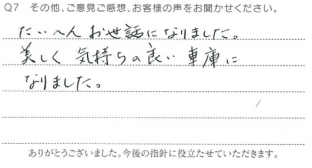 Q7 その他、ご意見ご感想、お客様の声をお聞かせください。
たいへんお世話になりました。
美しく気持ちの良い車庫に
なりました。
ありがとうございました。今後の指針に役立たせていただきます。